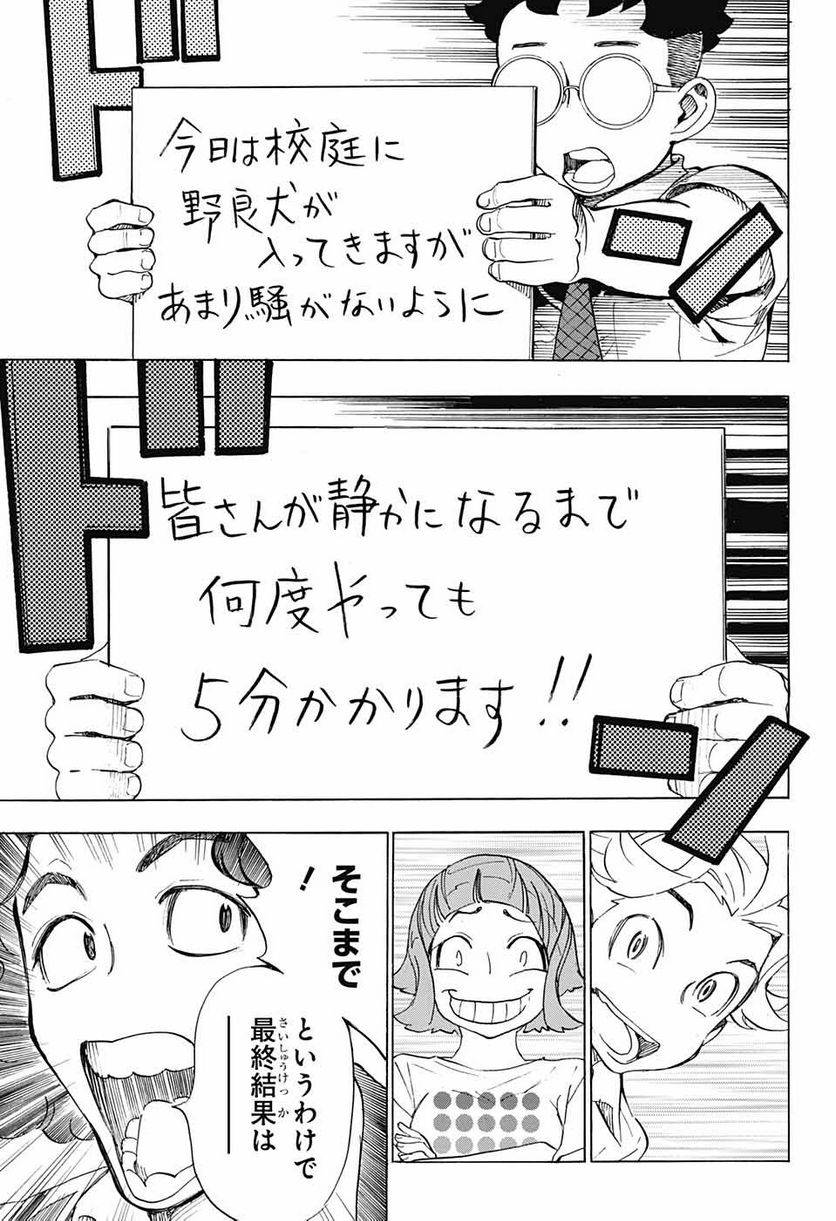 ドドーン
今日は校庭に
野良犬が
入ってきますが
あまり騒がないように
ドドーン
皆さんが静かになるまで
何度やっても
5分かかります!!
そこまで
!
というわけで
最終結果は
さいしゅうけっか